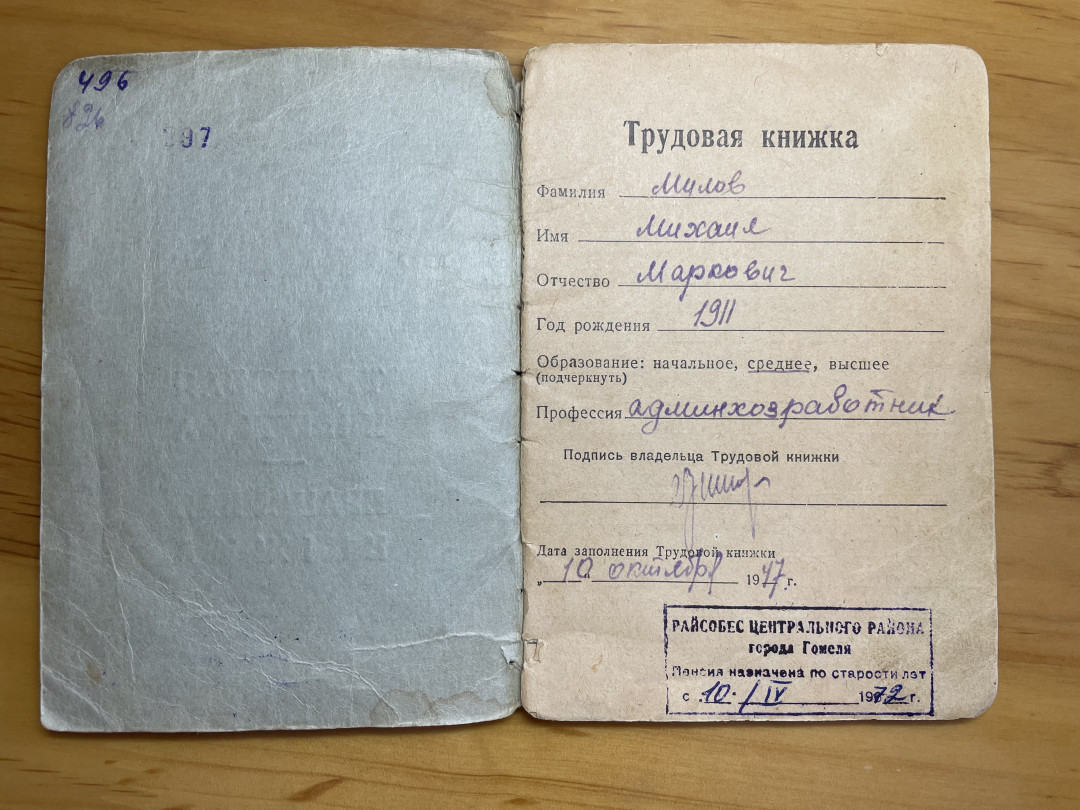 496
826
397
Трудовая книжка
Фамилия Милов
Имя Михаил
Отчество Маркович
Год рождения 1911
Образование: начальное, среднее, высшее
(подчеркнуть)
Профессия админхозработник
Подпись владельца Трудовой книжки
Дата заполнения Трудовой книжки
„10 октября 1947 г.
РАЙСОБЕС ЦЕНТРАЛЬНОГО РАЙОНА
города Гомеля
Пенсия назначена по старости лет
с 10. / IV 1972 г.